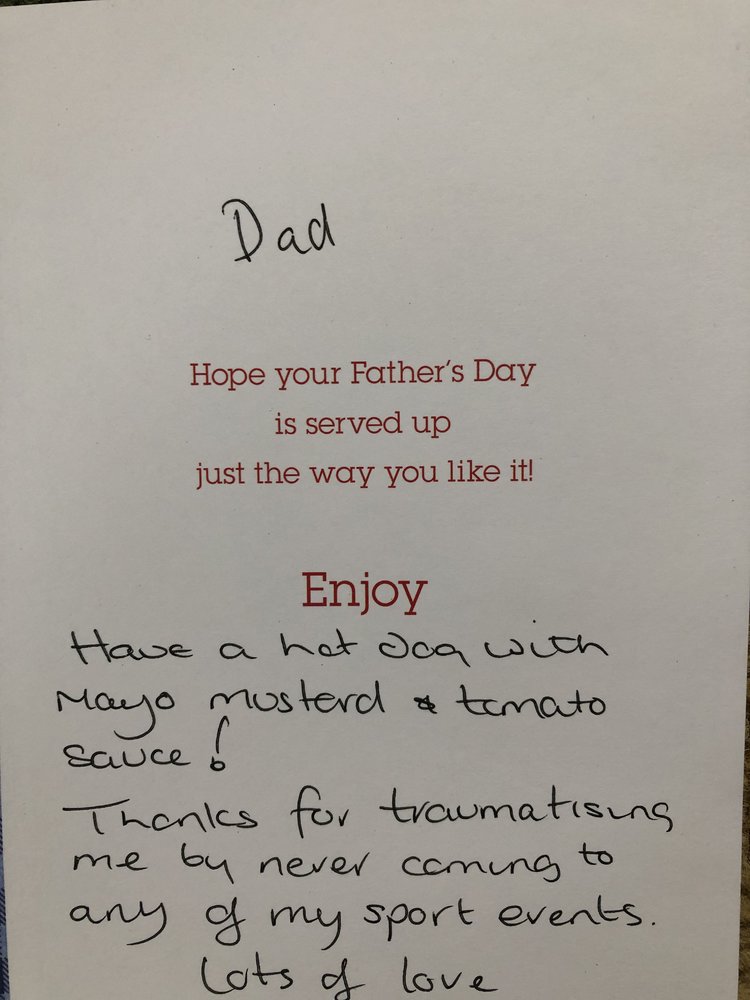 Dad
Hope your Father's Day
is served up
just the way you like it!
Enjoy
Have a hot dog with
Mayo musterd & tomato
sauce!
Thanks for traumatising
me by never coming to
any of my sport events.
Lots of love